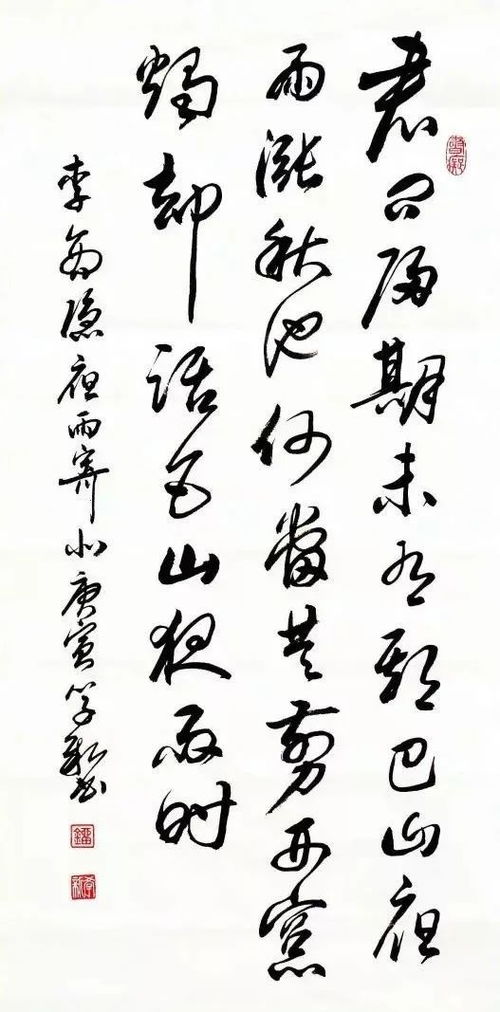 君问归期未有期巴山夜
雨涨秋池何当共剪西窓
烛却话巴山夜雨时
李商隐夜雨寄北庚寅书